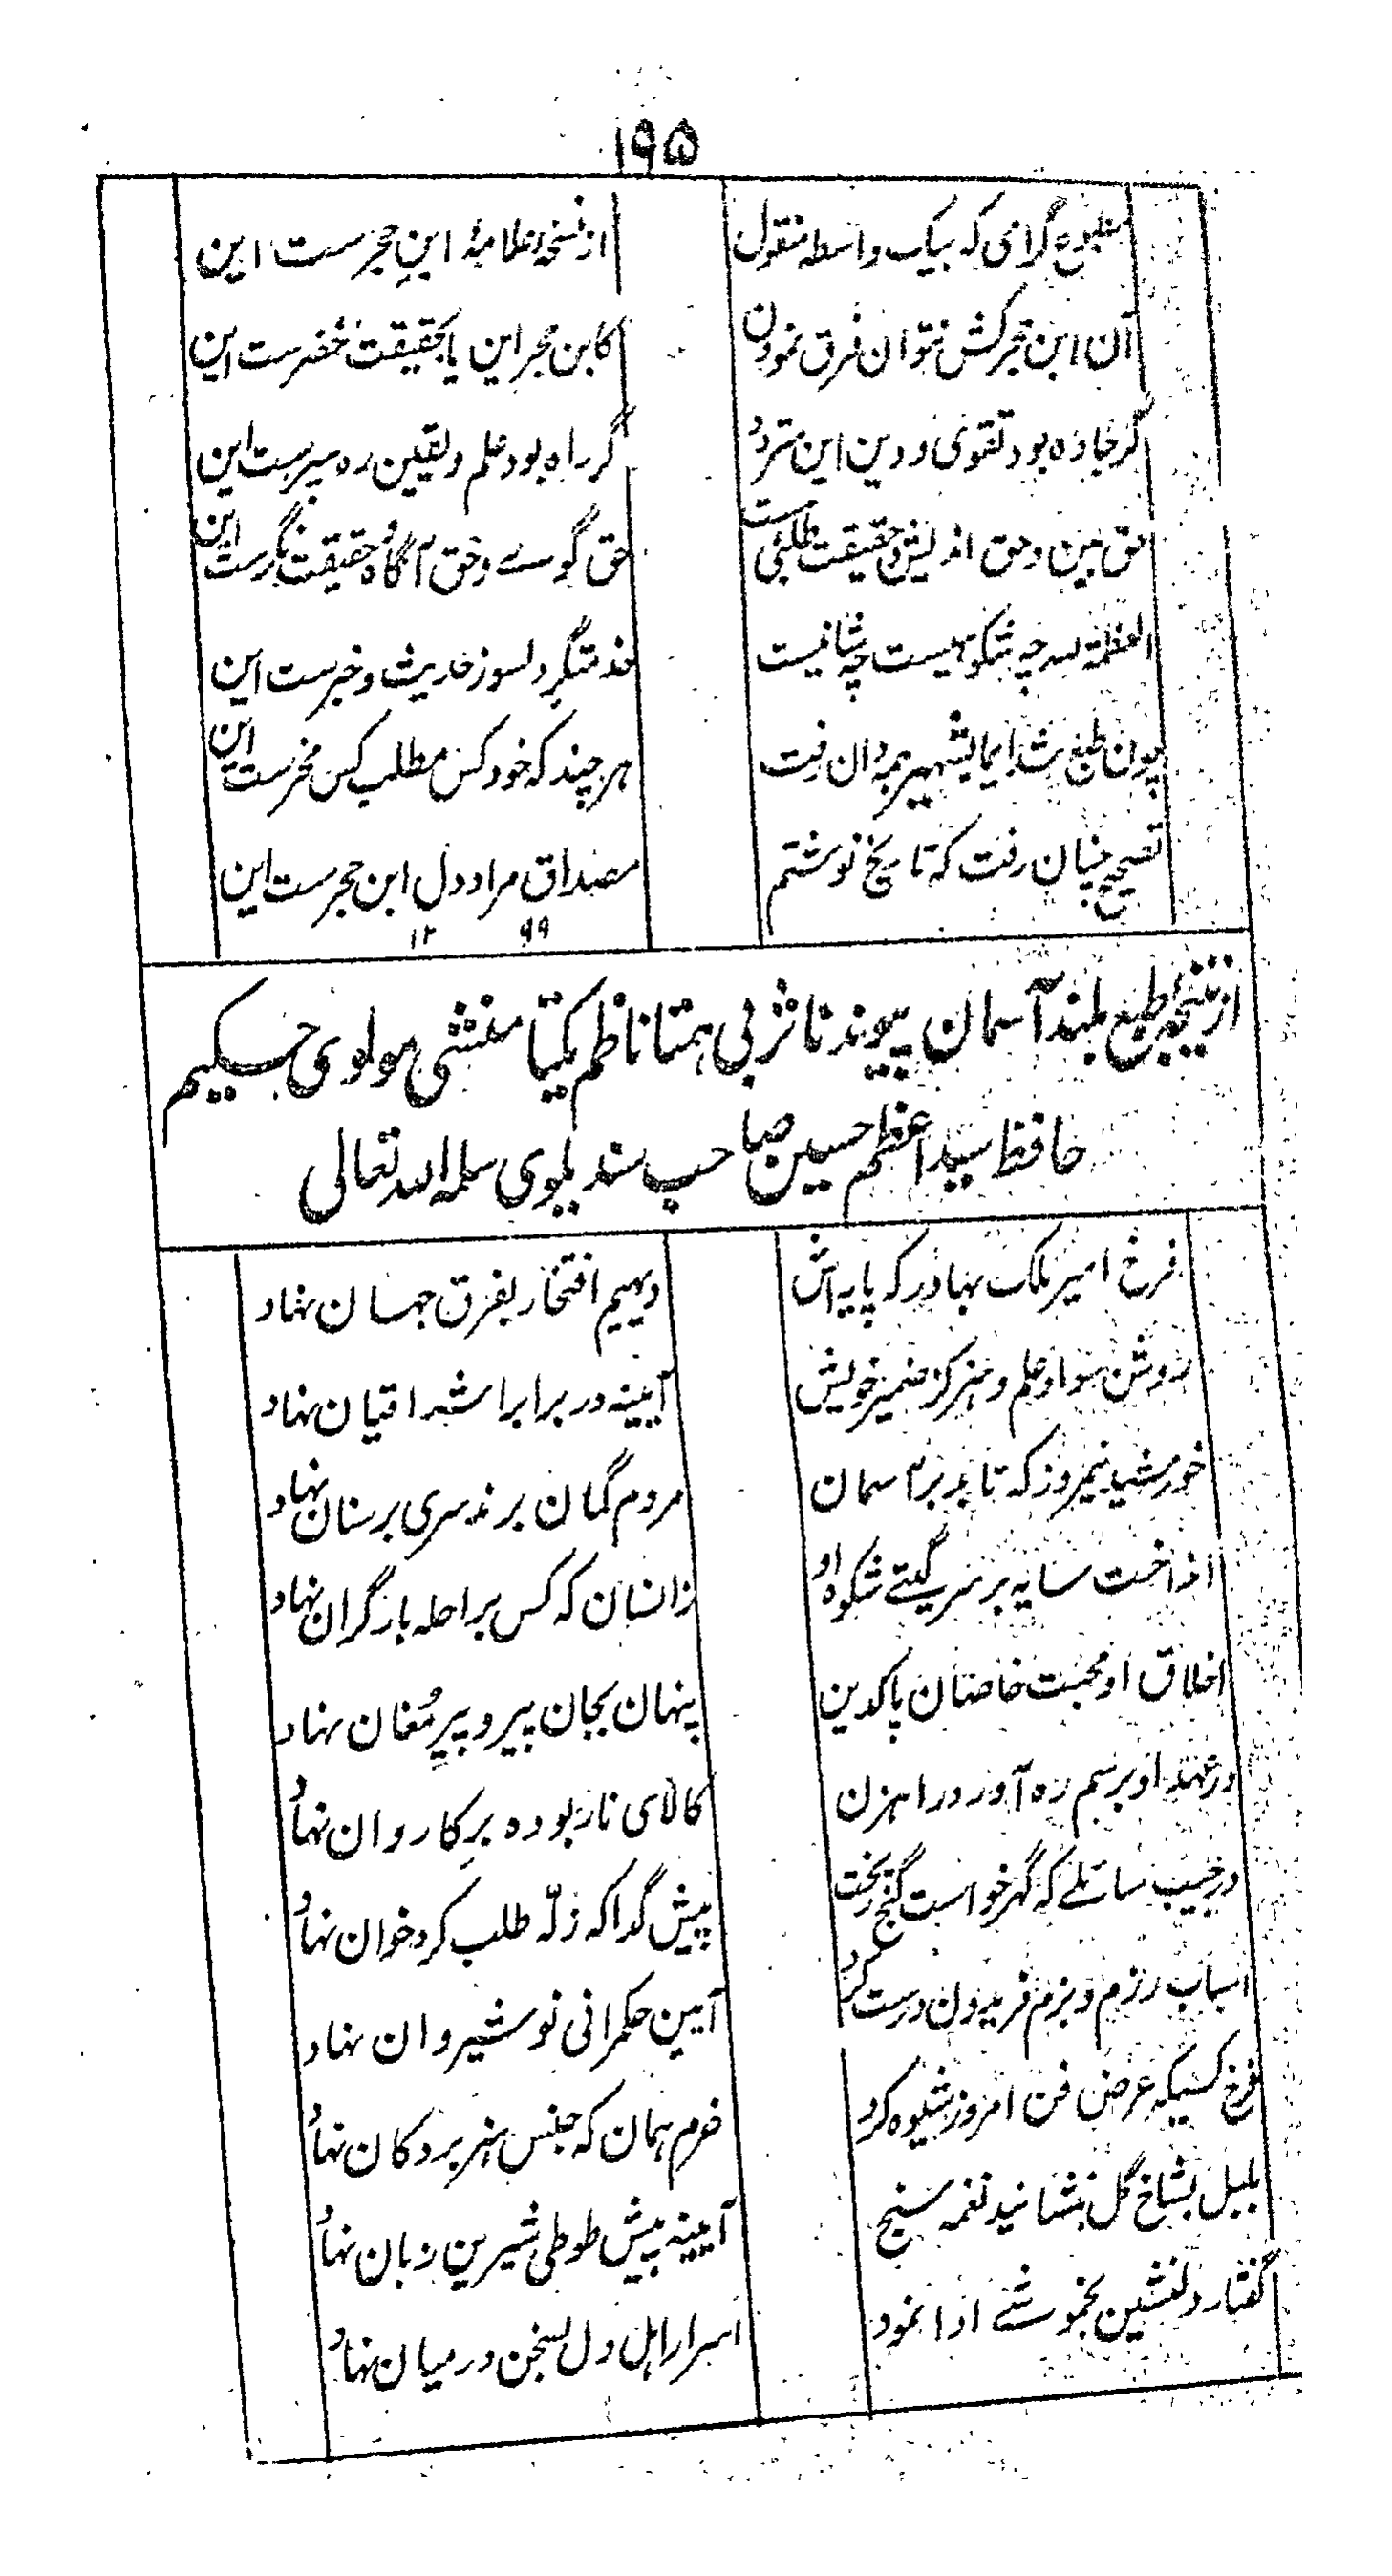 ۱۹۵
مطبوع گرامی که بیک واسطه منقول از نسخهٔ علامهٔ ابنِ حجرست این
آن ابن حجر کش نتوان فرق نمودن کابن حجر این یا بحقیقت خضرست این
گر جاده بود تقوی و دین این متردد گر راه بود علم و یقین ره سپرست این
حق بین و حق اندیش و حقیقت طلبی ست حق گوے و حق آگاه حقیقت نگرست این
العظمة لله چه شکوهیست چه شانیست خدمتگر دلسوز حدیث و خبرست این
چون طبع شد ایما بشهیر همه دان رفت هر چند که خود کس مطلب کس مخرست این
تصحیح چنان رفت که تاریخ نوشتم مصداق مراد دل ابن حجرست این
۱۲ ۹۹
از نتیجهٔ طبع بلند آسمان پیوند ناثر بی همتا ناظم یکتا منشی مولوی حکیم
حافظ سید اعظم حسین صاحب سندیلوی سلمه الله تعالی
فرخ امیر ملک بهادر که پایه اش دیهیم افتخار بفرق جهان نهاد
روشن سواد علم و هنر کز ضمیر خویش آیینه در برابر اشراقیان نهاد
خورشید نیمروز که تابد بر آسمان مردم گمان برند سری بر سنان نهاد
انداخت سایه بر سر گیتے شکوه او زانسان که کس براحله بار گران نهاد
اخلاق او محبت خاصان پاکدین پنهان بجان پیر و پیرِ مُغان نهاد
در عهد او برسم ره آورد راهزن کالای ناربوده برِ کاروان نهاد
در جیب سائلے که گهر خواست گنج ریخت پیش گدا که زلّه طلب کرد خوان نهاد
اسباب رزم و بزم فریدون درست کرد آیین حکمرانی نوشیروان نهاد
فرخ کسیکه عرض فن امروز شیوه کرد خرم همان که جنس هنر بر دکان نهاد
بلبل بشاخ گل بنشانید نغمه سنج آیینه پیش طوطی شیرین زبان نهاد
گفتار دلنشین بخموشے ادا نمود اسرار اهل دل بسخن درمیان نهاد